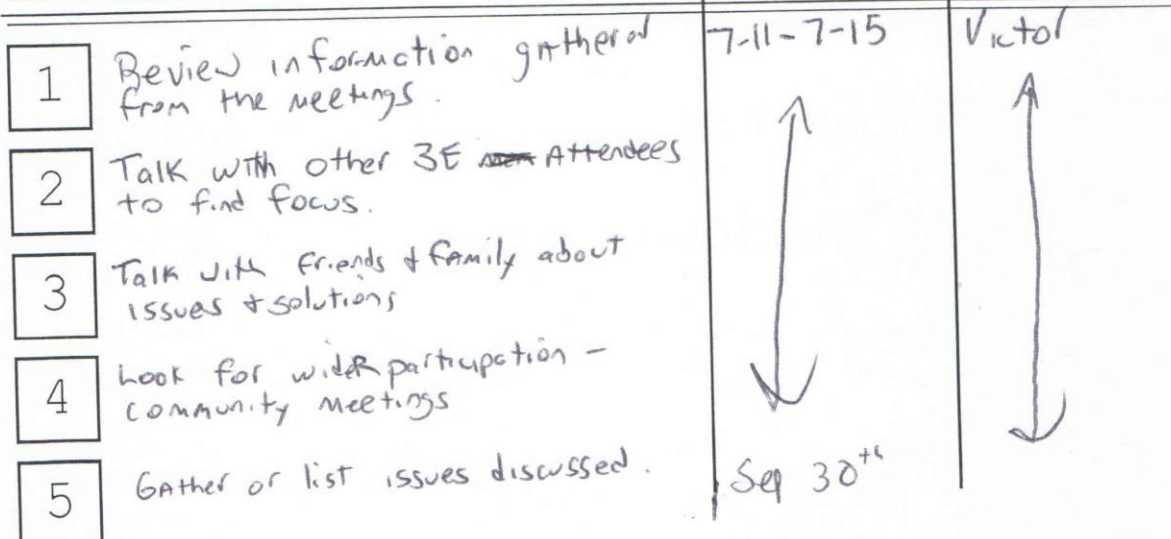 7-11-7-15
Victor
1
Review information gathered
from the meetings.
2
Talk with other 3E Attendees
to find focus.
3
Talk with friends & family about
issues & solutions
4
Look for wider participation -
community meetings
5
Gather or list issues discussed.
Sep 30th